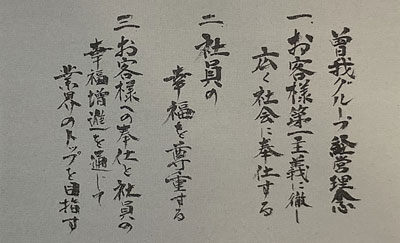 曽我グループ経営理念
一、お客様第一主義に徹し
広く社会に奉仕する
二 社員の
幸福を尊重する
三 お客様への奉仕と社員の
幸福増進を通じて
業界のトップを目指す